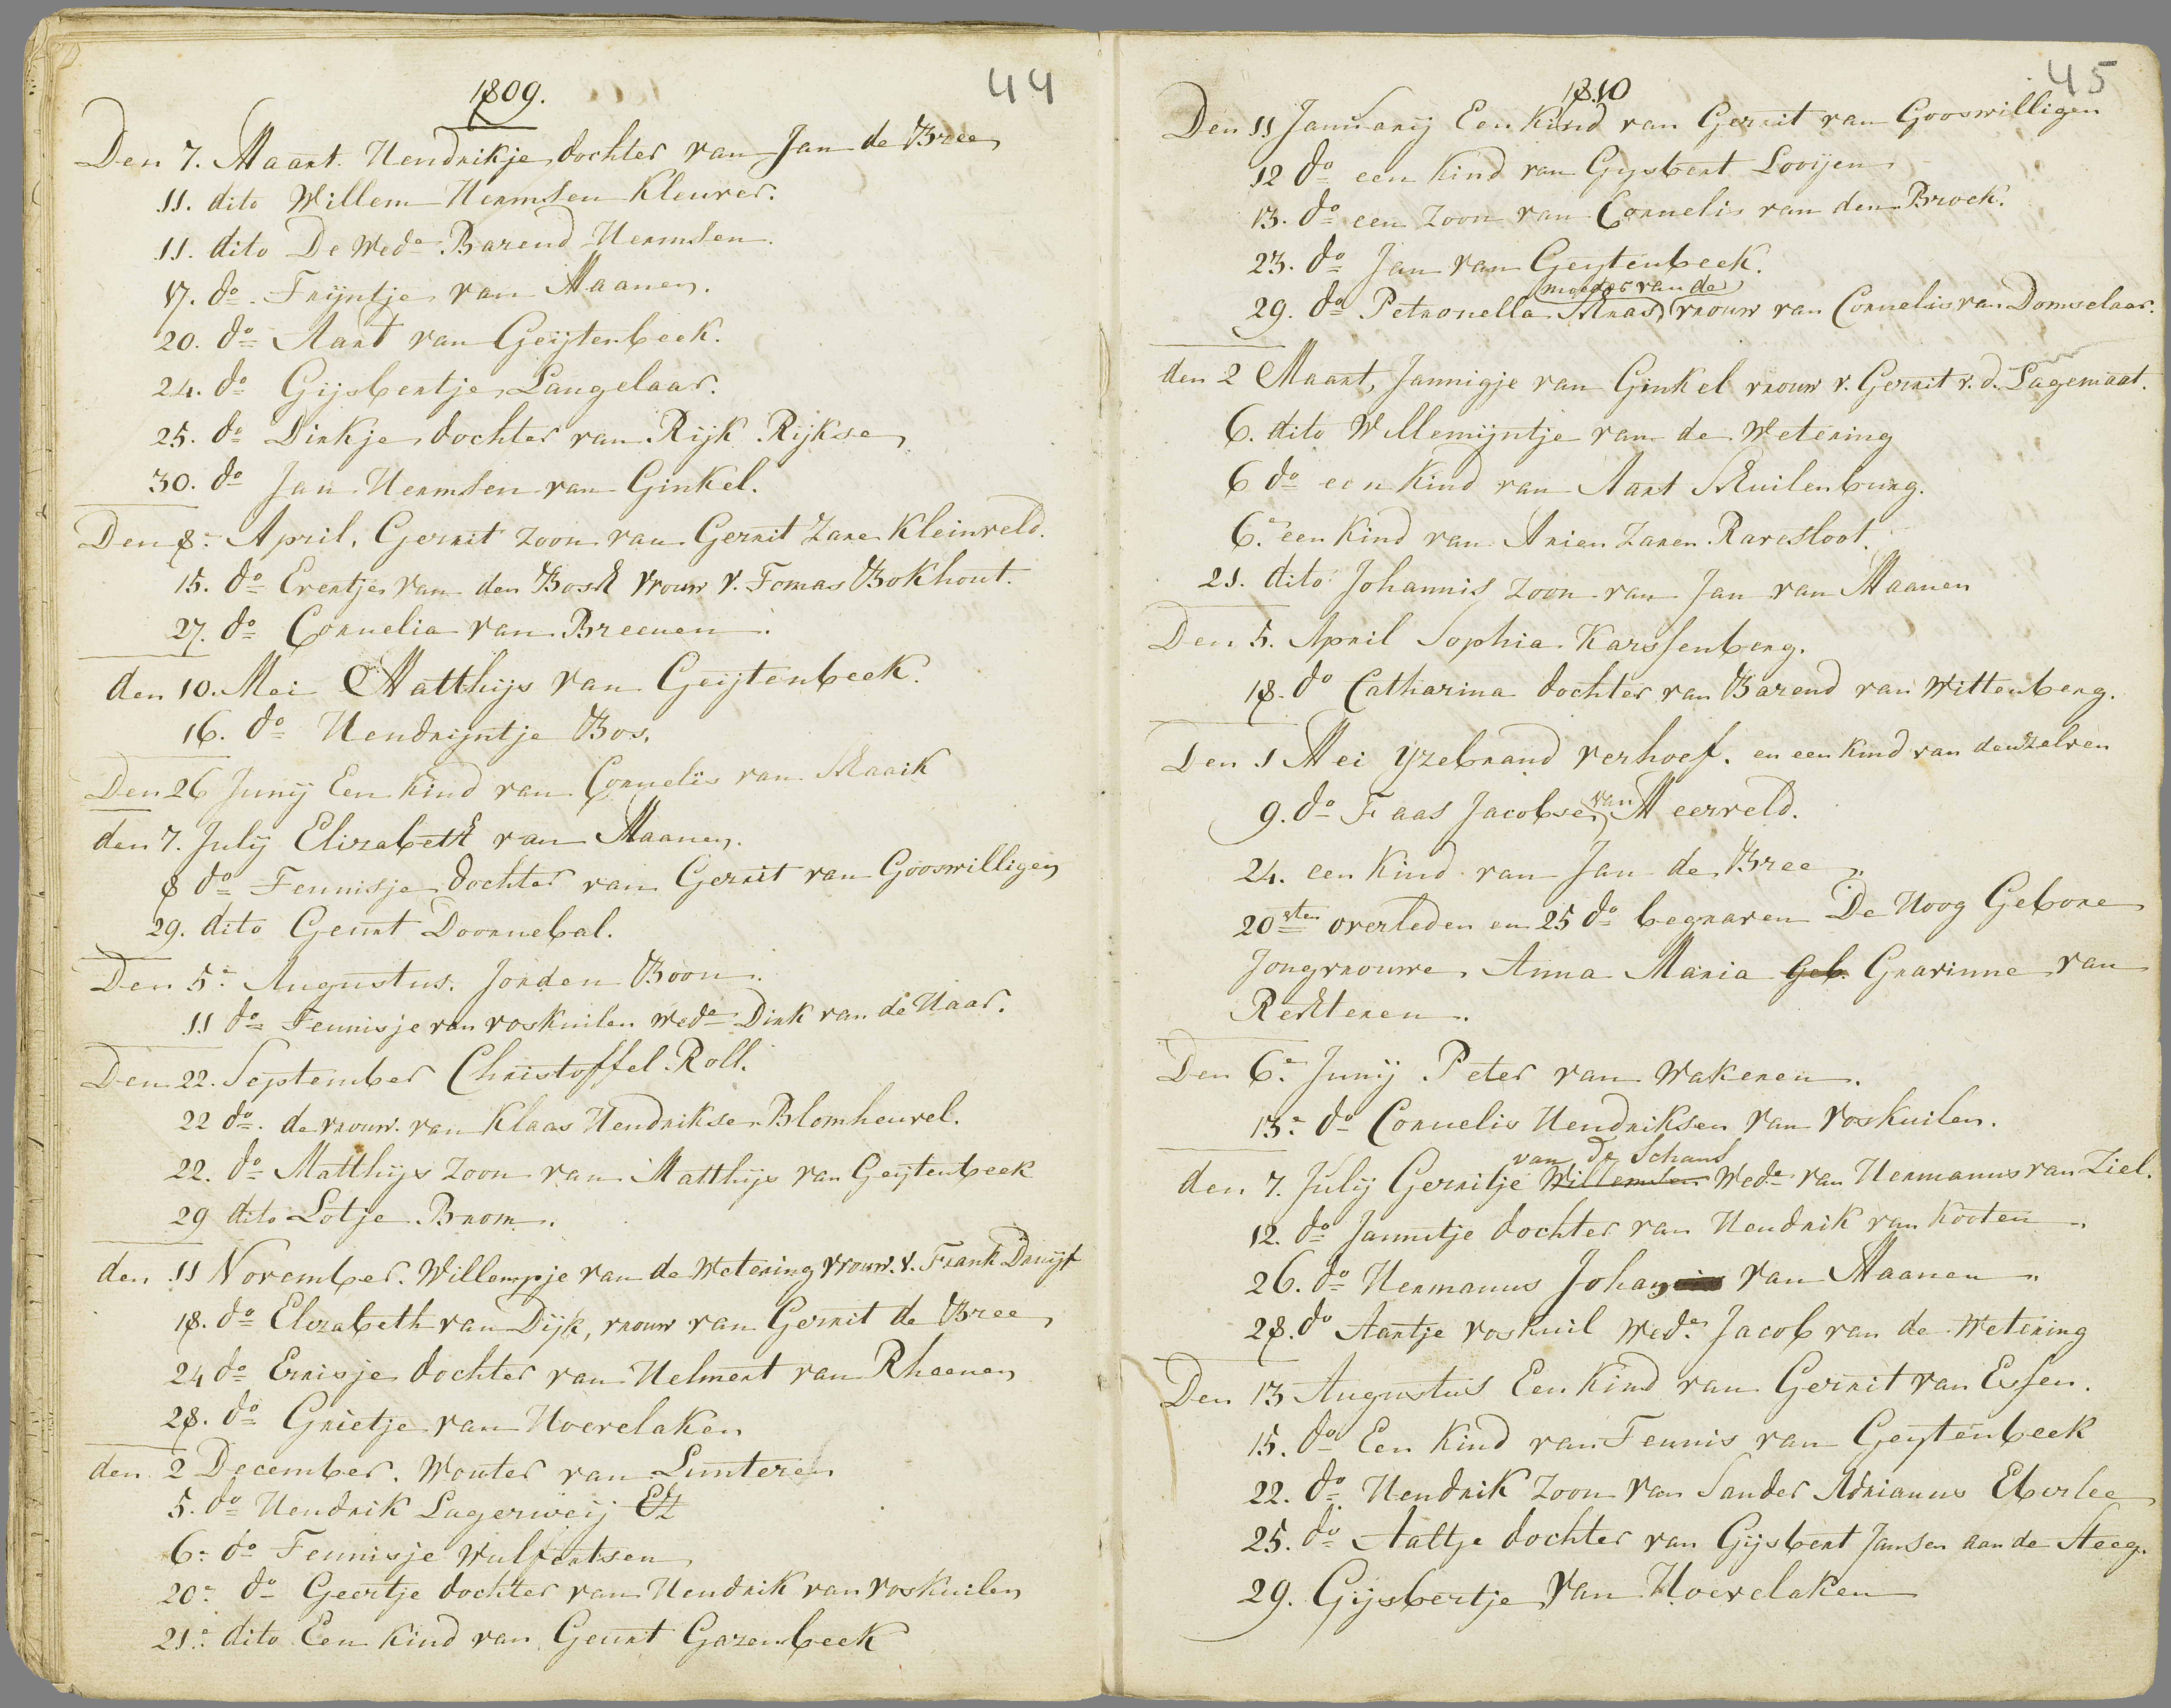 1809.
44
Den 7. Maart. Hendrikje dochter van Jan de Bree
11. dito Willem Hermsen Kleuver.
11. dito De Wede Barend Hermsen.
17. do. Frijntje van Maanen.
20. do Aart van Geijtenbeek.
24. do Gijsbertje Langelaar.
25. do Dirkje dochter van Rijk Rijkse
30. do Jan Hermsen van Ginkel.
Den 8. April. Gerrit zoon van Gerrit Zane Kleinveld.
15. do Evertje van den Bosch vrouw v. Tomas Bokhout.
27. do Cornelia van Breenen.
den 10. Mei Matthijs van Geijtenbeek.
16. do Hendrijntje Bos.
Den 26 Junij Een Kind van Cornelis van Maaik
den 7. Julij Elizabeth van Maanen.
8 do Teunisje dochter van Gerrit van Gooswilligen
29. dito Geurt Doornebal.
Den 5e Augustus. Jorden Boon.
11 do Teunisje van voskuilen Wede Dirk van de Haar.
Den 22. September Christoffel Roll.
22 do. de vrouw. van Klaas Hendriksen Blomheuvel.
22. do Matthijs zoon van Matthijs van Geijtenbeek
29 dito Lotje Brom.
den 11 November. Willempje van de Wetering vrouw. v. Frank Druijf
18. do Elizabeth van Dijk, vrouw van Gerrit de Bree
24 do Errisje dochter van Helmert van Rheenen
28. do Grietje van Hoevelaken
den 2 December. Wouter van Lunteren
5. do Hendrik Lagerweij Etz
6e do Teunisje Wulfertsen
20e do Geertje dochter van Hendrik van voskuilen
21e dito Een Kind van Geurt Gazenbeek
1810
45
Den 11 Januarij Een Kind van Gerrit van Gooswilligen
12 do een Kind van Gysbert Looijen
13. do een zoon van Cornelis van den Broek.
23. do Jan van Geytenbeek.
moeder van de
29. do Petronella Maas vrouw van Cornelis van Domselaar.
den 2 Maart, Jannigje van Ginkel vrouw v. Gerrit v. d. Lagemaat.
6. dito Willemijntje van de Wetering
6 do een Kind van Aart Muilenburg.
6. een Kind van Arien Zanen Ravesloot.
21. dito Johannis zoon van Jan van Maanen
Den 5. April Sophia Karssenberg.
18. do Catharina dochter van Barend van Wittenberg.
Den 1 Mei Yzebrand verhoef. en een Kind van denzelven
9. do Faas Jacobsen van Meerveld.
24. een Kind van Jan de Bree
20sten overleden en 25 do begraven De Hoog Gebore
Jongvrouwe, Anna Maria Geb. Gravinne van
Rechteren.
Den 6e Junij Peter van Wakeren.
13e do Cornelis Hendriksen van voskuilen.
van de Schans
den 7. Julij Gerritje Willemsen Wede van Hermanus van Ziel.
12. do Jannetje dochter van Hendrik van Kooten
26. do Hermanus Johan van Maanen.
28. do Aartje voskuil Wede Jacob van de Wetering
Den 13 Augustus Een Kind van Gerrit van Essen.
15. do Een Kind van Teunis van Geytenbeek
22. do Hendrik zoon van Sander Adrianus Eberlee
25. do Aaltje dochter van Gijsbert Jansen aan de Steeg.
29. Gijsbertje van Hoevelaken